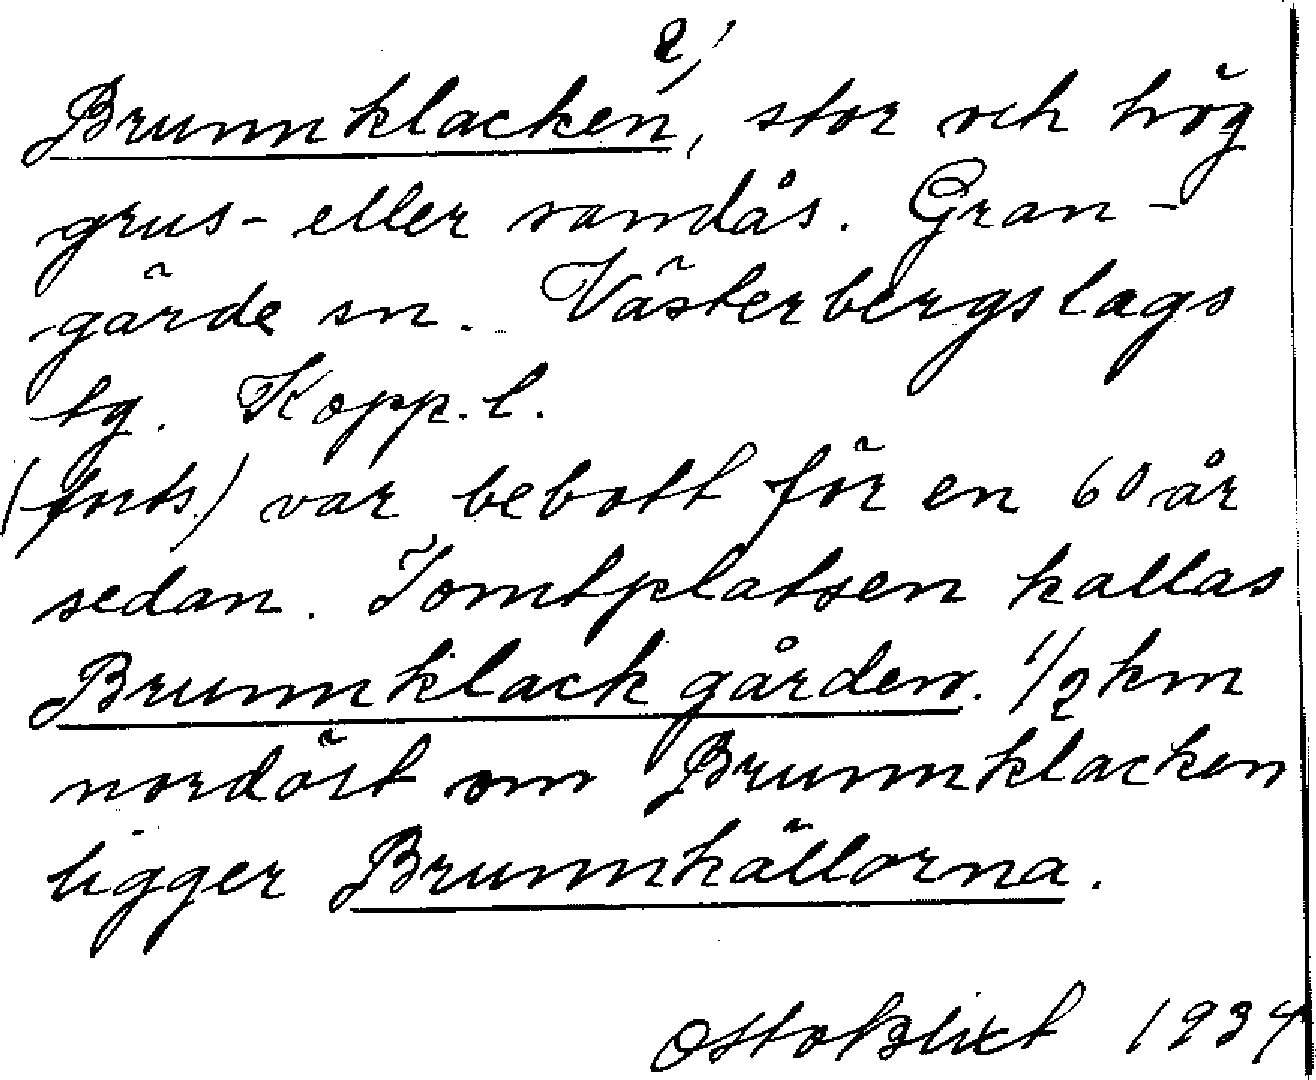 2)
Brunnklacken, stor och hög
grus- eller sandås. Gran-
gärde sn. Västerbergslags
tg. Kopp. l.
(forts.) var bebott för en 60 år
sedan. Tomtplatsen kallas
Brunnklackgården. 1/2 km
nordöst om Brunnklacken
ligger Brunnkällorna.
Otto Blixt 1934